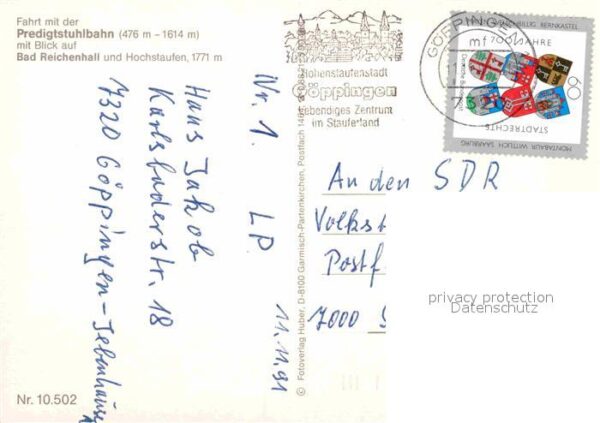 Fahrt mit der
Predigtstuhlbahn (476 m – 1614 m)
mit Blick auf
Bad Reichenhall und Hochstaufen, 1771 m
Hans Jakob
Karlsbaderstr. 18
7320 Göppingen-Jebenhausen
Nr. 1. LP.
11.11.91
Hohenstaufenstadt
Göppingen
Lebendiges Zentrum
im Stauferland
GÖPPINGEN
mf
7320
BERNKASTEL
700 JAHRE
STADTRECHTE
60
MONTABAUR WITTLICH SAARBURG
© Fotoverlag Huber, D-8100 Garmisch-Partenkirchen, Postfach
An den SDR
Volkst
Postf
7000 S
privacy protection
Datenschutz
Nr. 10.502